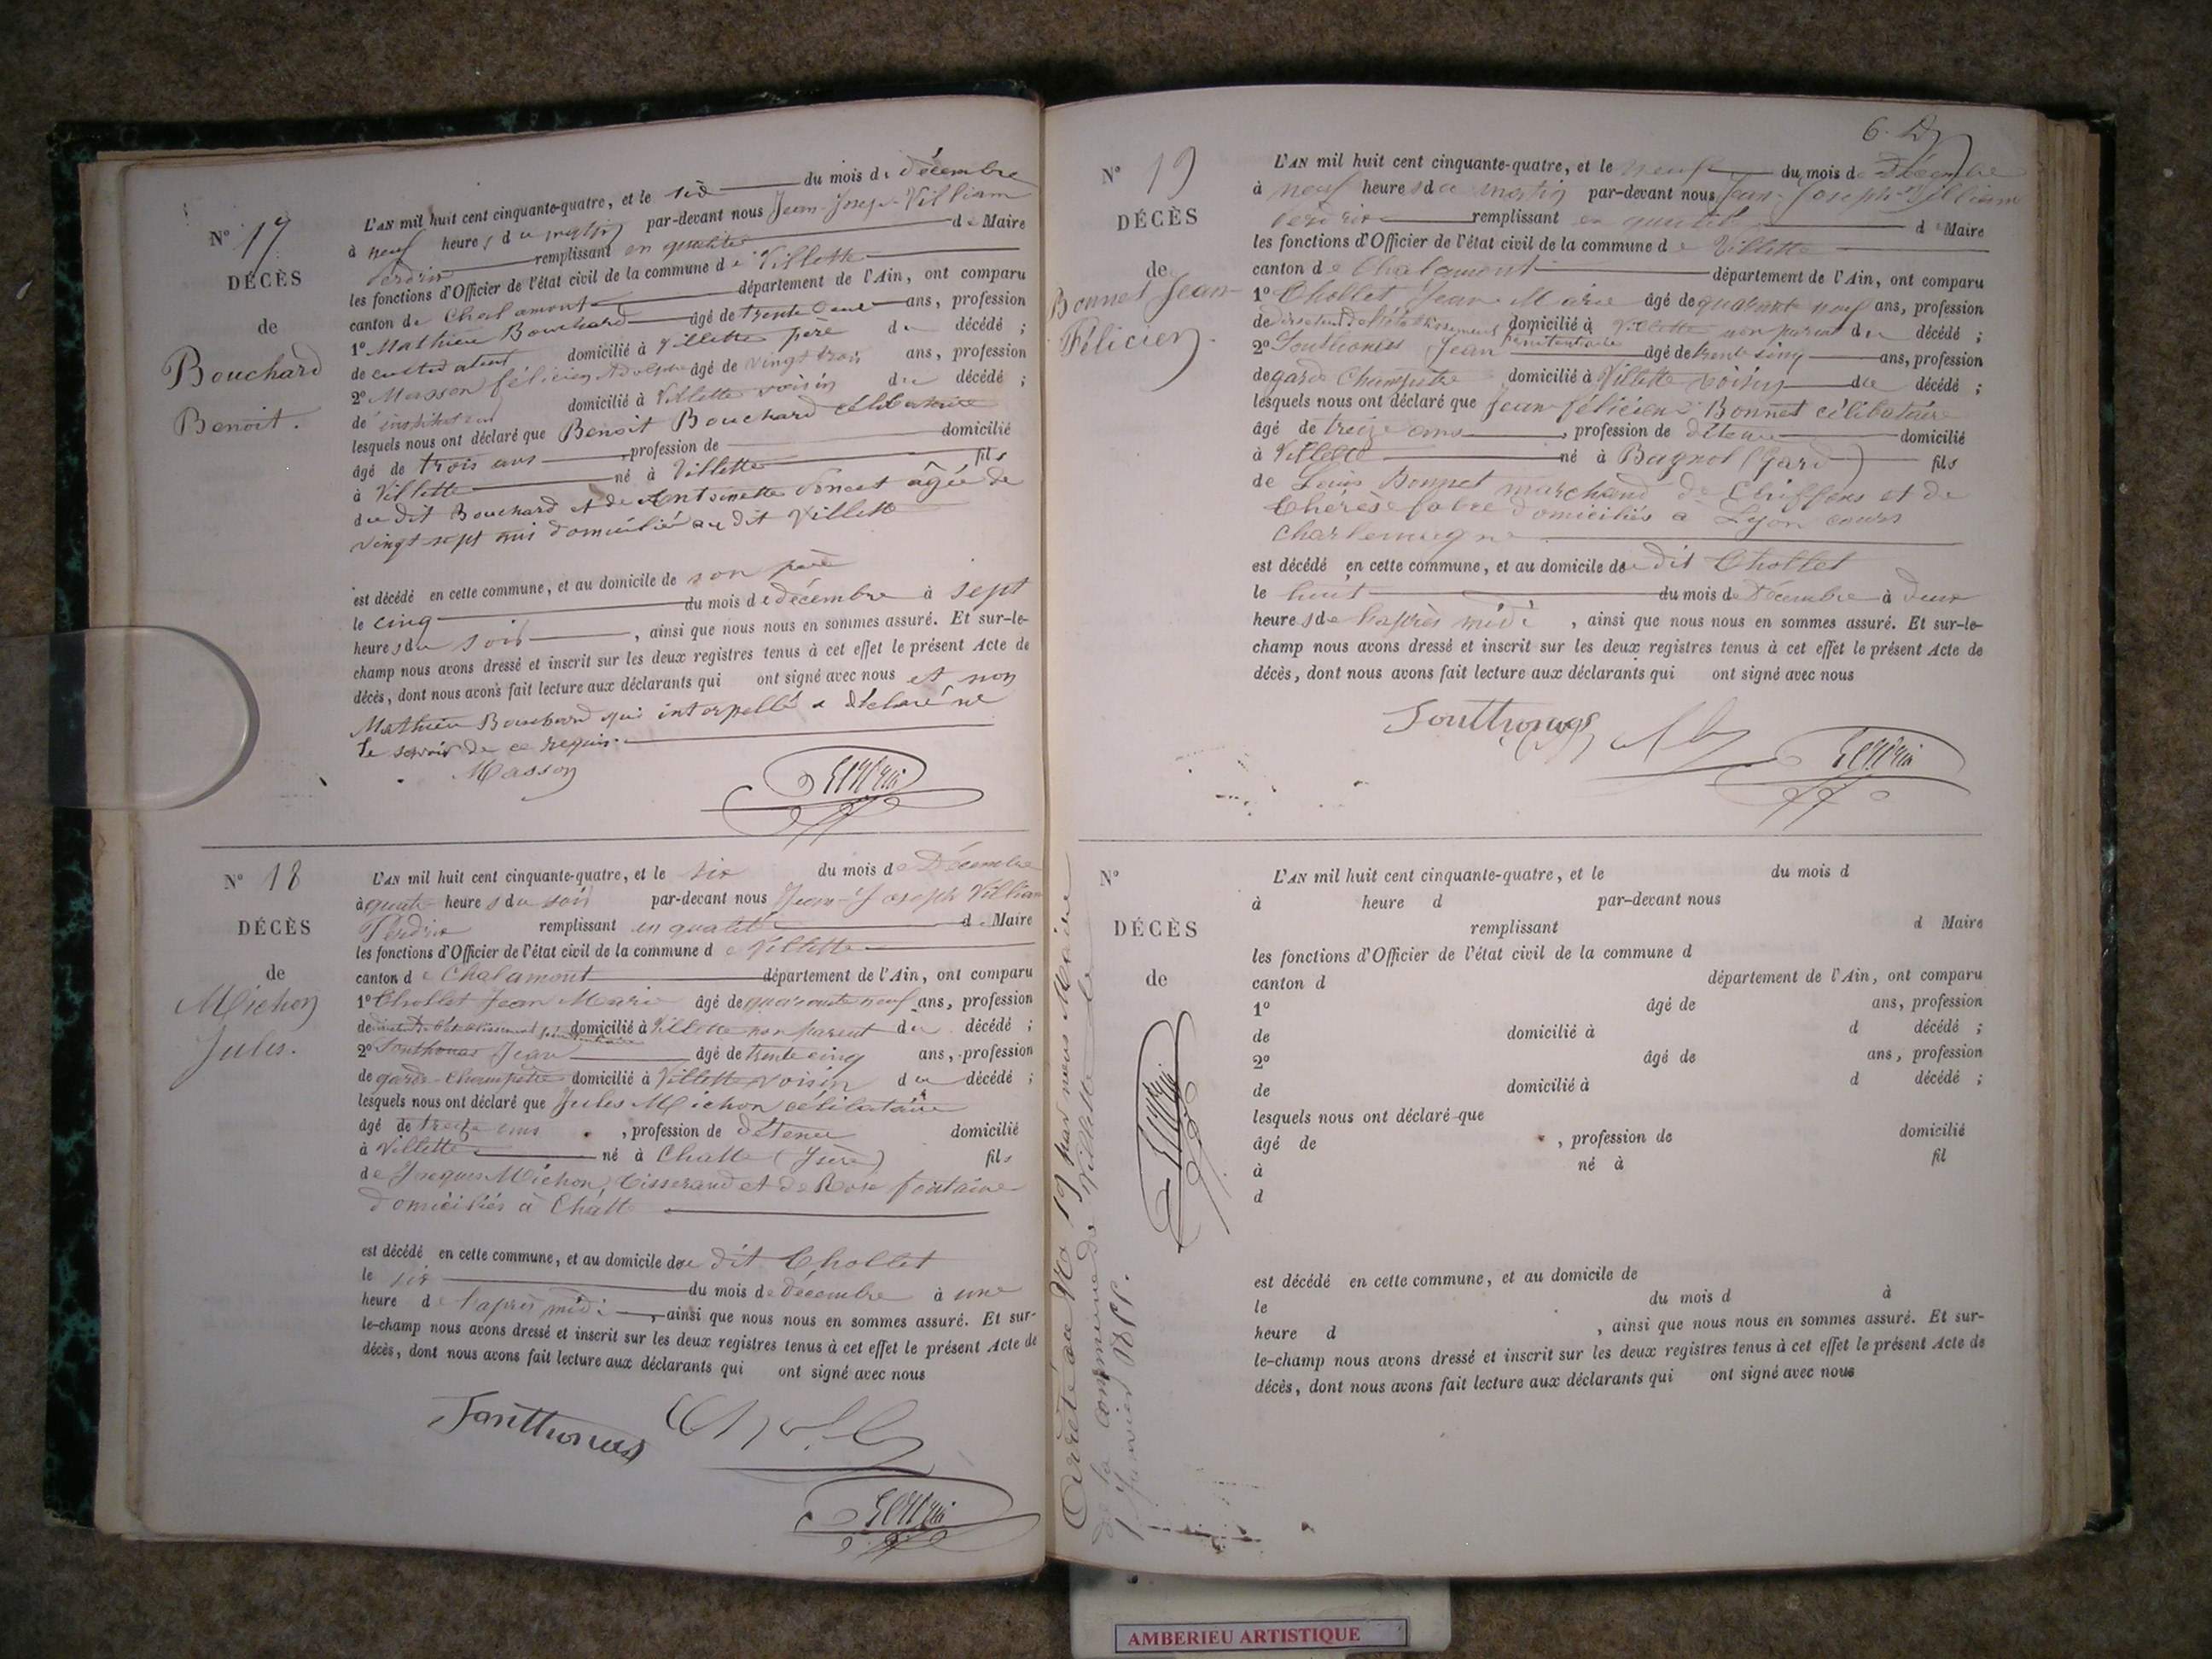 N° 17
DÉCÈS
de
Bouchard
Benoit.
L'AN mil huit cent cinquante-quatre, et le six du mois de décembre
à neuf heures du matin par-devant nous Jean-Joseph-Villiam
Perdrix remplissant en qualité de Maire
les fonctions d'Officier de l'état civil de la commune de Villette
canton de Chalamont département de l'Ain, ont comparu
1° Mathieu Bouchard âgé de trente deux ans, profession
de cultivateur domicilié à Villette père du décédé ;
2° Masson félicien Adolphe âgé de vingt trois ans, profession
de instituteur domicilié à Villette voisin du décédé ;
lesquels nous ont déclaré que Benoit Bouchard célibataire
âgé de trois ans , profession de domicilié
à Villette né à Villette fils
du dit Bouchard et de Antoinette Poncet âgée de
vingt sept ans domiciliés au dit Villette
est décédé en cette commune, et au domicile de son père
le cinq du mois de décembre à sept
heures du soir , ainsi que nous nous en sommes assuré. Et sur-le-
champ nous avons dressé et inscrit sur les deux registres tenus à cet effet le présent Acte de
décès, dont nous avons fait lecture aux déclarants qui ont signé avec nous et non
Mathieu Bouchard qui interpellé a déclaré ne
le savoir de ce requis.
Masson
Perdrix
N° 18
DÉCÈS
de
Michon
Jules.
L'AN mil huit cent cinquante-quatre, et le six du mois de Décembre
à quatre heures du soir par-devant nous Jean-Joseph Villiam
Perdrix remplissant en qualité de Maire
les fonctions d'Officier de l'état civil de la commune de Villette
canton de Chalamont département de l'Ain, ont comparu
1° Chollet Jean Marie âgé de quarante neuf ans, profession
de directeur de l'établissement pénitentiaire domicilié à Villette non parent du décédé ;
2° Southonax Jean âgé de trente cinq ans, profession
de garde-Champêtre domicilié à Villette voisin du décédé ;
lesquels nous ont déclaré que Jules Michon célibataire
âgé de treize ans , profession de détenu domicilié
à Villette né à Chatte (Isère) fils
de Jacques Michon, tisserand et de Rose fontaine
domiciliés à Chatte
est décédé en cette commune, et au domicile du dit Chollet
le six du mois de décembre à une
heure de l'après midi , ainsi que nous nous en sommes assuré. Et sur-
le-champ nous avons dressé et inscrit sur les deux registres tenus à cet effet le présent Acte de
décès, dont nous avons fait lecture aux déclarants qui ont signé avec nous
Perdrix
6.
N° 19
DÉCÈS
de
Bonnet Jean
Félicien.
L'AN mil huit cent cinquante-quatre, et le neuf du mois de Décembre
à neuf heures du matin par-devant nous Jean-Joseph-Villiam
Perdrix remplissant en qualité de Maire
les fonctions d'Officier de l'état civil de la commune de Villette
canton de Chalamont département de l'Ain, ont comparu
1° Chollet Jean Marie âgé de quarante neuf ans, profession
de directeur de l'établissement pénitentiaire domicilié à Villette non parent du décédé ;
2° Southonax Jean âgé de trente cinq ans, profession
de garde Champêtre domicilié à Villette voisin du décédé ;
lesquels nous ont déclaré que Jean félicien Bonnet célibataire
âgé de treize ans , profession de détenu domicilié
à Villette né à Bagnol (Gard) fils
de Louis Bonnet marchand de Chiffons et de
Thérèse fabre domiciliés à Lyon cours
Charlemagne
est décédé en cette commune, et au domicile du dit Chollet
le huit du mois de Décembre à deux
heures de l'après midi , ainsi que nous nous en sommes assuré. Et sur-le-
champ nous avons dressé et inscrit sur les deux registres tenus à cet effet le présent Acte de
décès, dont nous avons fait lecture aux déclarants qui ont signé avec nous
Perdrix
N°
DÉCÈS
de
L'AN mil huit cent cinquante-quatre, et le du mois d
à heure d par-devant nous
remplissant d Maire
les fonctions d'Officier de l'état civil de la commune d
canton d département de l'Ain, ont comparu
1° âgé de ans, profession
de domicilié à d décédé ;
2° âgé de ans, profession
de domicilié à d décédé ;
lesquels nous ont déclaré que
âgé de , profession de domicilié
à né à fil
d
est décédé en cette commune, et au domicile de
le du mois d à
heure d , ainsi que nous nous en sommes assuré. Et sur-
le-champ nous avons dressé et inscrit sur les deux registres tenus à cet effet le présent Acte de
décès, dont nous avons fait lecture aux déclarants qui ont signé avec nous
Arrêté au No 19 par nous Maire
de la commune de Villette le
1 Janvier 1855.
Perdrix
AMBERIEU ARTISTIQUE